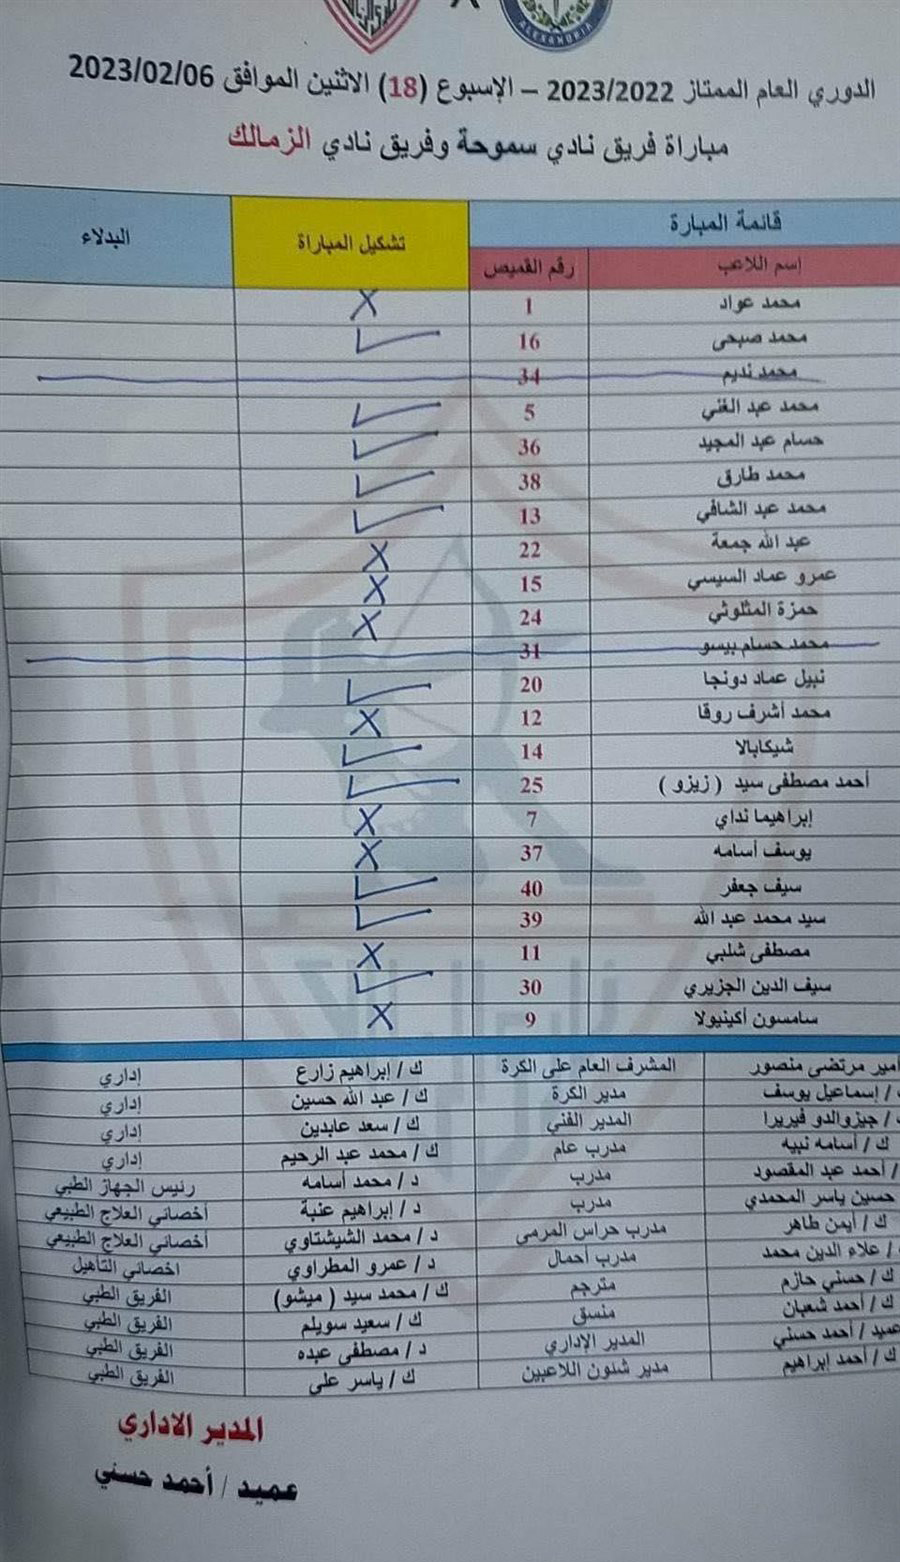 ALEXANDRIA
الدوري العام الممتاز 2023/2022 – الإسبوع (18) الاثنين الموافق 2023/02/06
مباراة فريق نادي سموحة وفريق نادي الزمالك
قائمة المباراة تشكيل المباراة البدلاء
إسم اللاعب رقم القميص
محمد عواد 1 X
محمد صبحى 16 ✓
محمد نديم 34
محمد عبد الغني 5 ✓
حسام عبد المجيد 36 ✓
محمد طارق 38 ✓
محمد عبد الشافي 13 ✓
عبد الله جمعة 22 X
عمرو عماد السيسي 15 X
حمزة المثلوثي 24 X
محمد حسام بيسو 31
نبيل عماد دونجا 20 ✓
محمد أشرف روقا 12 X
شيكابالا 14 ✓
أحمد مصطفى سيد ( زيزو ) 25 ✓
إبراهيما نداي 7 X
يوسف أسامه 37 X
سيف جعفر 40 ✓
سيد محمد عبد الله 39 ✓
مصطفى شلبي 11 X
سيف الدين الجزيري 30 ✓
سامسون أكينيولا 9 X
أمير مرتضى منصور المشرف العام على الكرة ك / إبراهيم زارع إداري
/ إسماعيل يوسف مدير الكرة ك / عبد الله حسين إداري
/ جيزوالدو فيريرا المدير الفني ك / سعد عابدين إداري
ك / أسامه نبيه مدرب عام ك / محمد عبد الرحيم إداري
/ أحمد عبد المقصود مدرب د / محمد أسامه رئيس الجهاز الطبي
حسين ياسر المحمدي مدرب د / إبراهيم عنبة أخصائي العلاج الطبيعي
ك / أيمن طاهر مدرب حراس المرمى د / محمد الشيشتاوي أخصائي العلاج الطبيعي
/ علاء الدين محمد مدرب أحمال د / عمرو المطراوي اخصائي التأهيل
ك / حسني حازم مترجم ك / محمد سيد ( ميشو) الفريق الطبي
ك / أحمد شعبان منسق ك / سعيد سويلم الفريق الطبي
عميد / أحمد حسني المدير الإداري د / مصطفى عبده الفريق الطبي
ك / أحمد إبراهيم مدير شئون اللاعبين ك / ياسر على الفريق الطبي
المدير الاداري
عميد / أحمد حسني